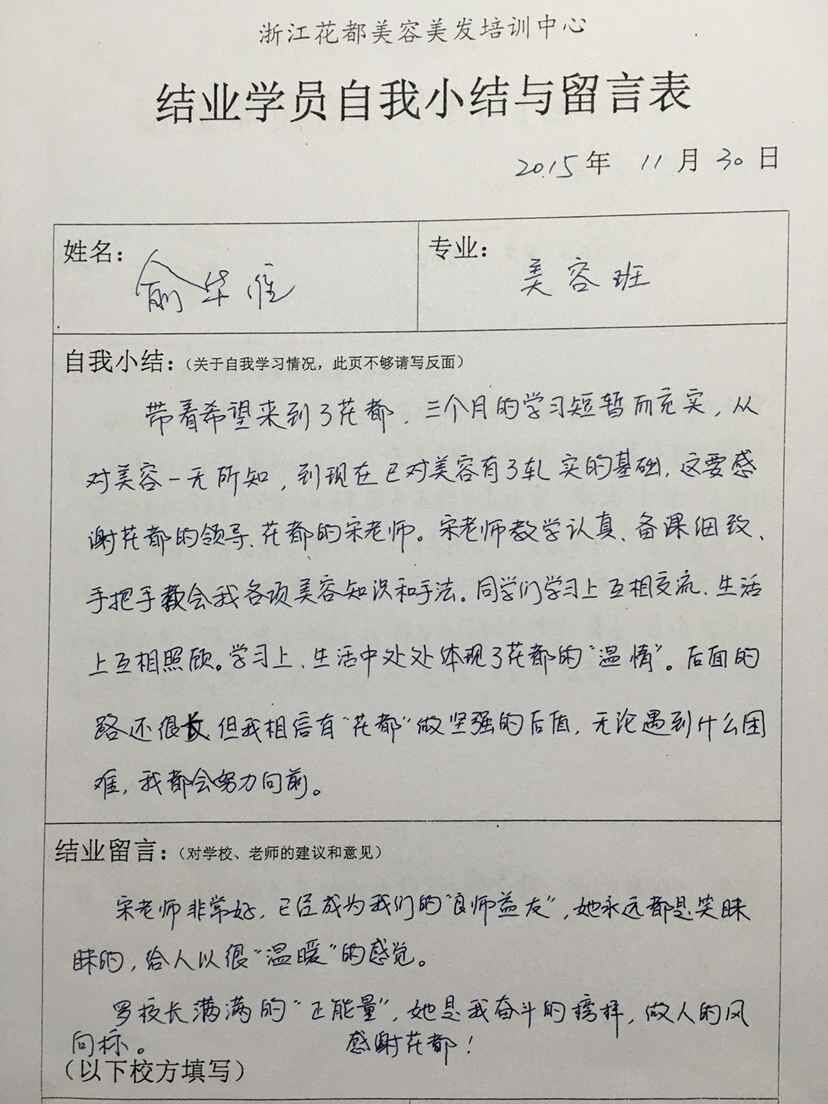 浙江花都美容美发培训中心
结业学员自我小结与留言表
2015年 11月 30日
姓名：俞华雅
专业：美容班
自我小结：（关于自我学习情况，此页不够请写反面）
带着希望来到了花都，三个月的学习短暂而充实，从
对美容一无所知，到现在已对美容有了轧实的基础，这要感
谢花都的领导、花都的宋老师。宋老师教学认真、备课细致、
手把手教会我各项美容知识和手法。同学们学习上互相交流、生活
上互相照顾。学习上、生活中处处体现了花都的“温情”。后面的
路还很长，但我相信有“花都”做坚强的后盾，无论遇到什么困
难，我都会努力向前。
结业留言：（对学校、老师的建议和意见）
宋老师非常好，已经成为我们的“良师益友”，她永远都是笑眯
眯的，给人以很“温暖”的感觉。
罗校长满满的“正能量”，她是我奋斗的榜样，做人的风
向标。 感谢花都！
（以下校方填写）